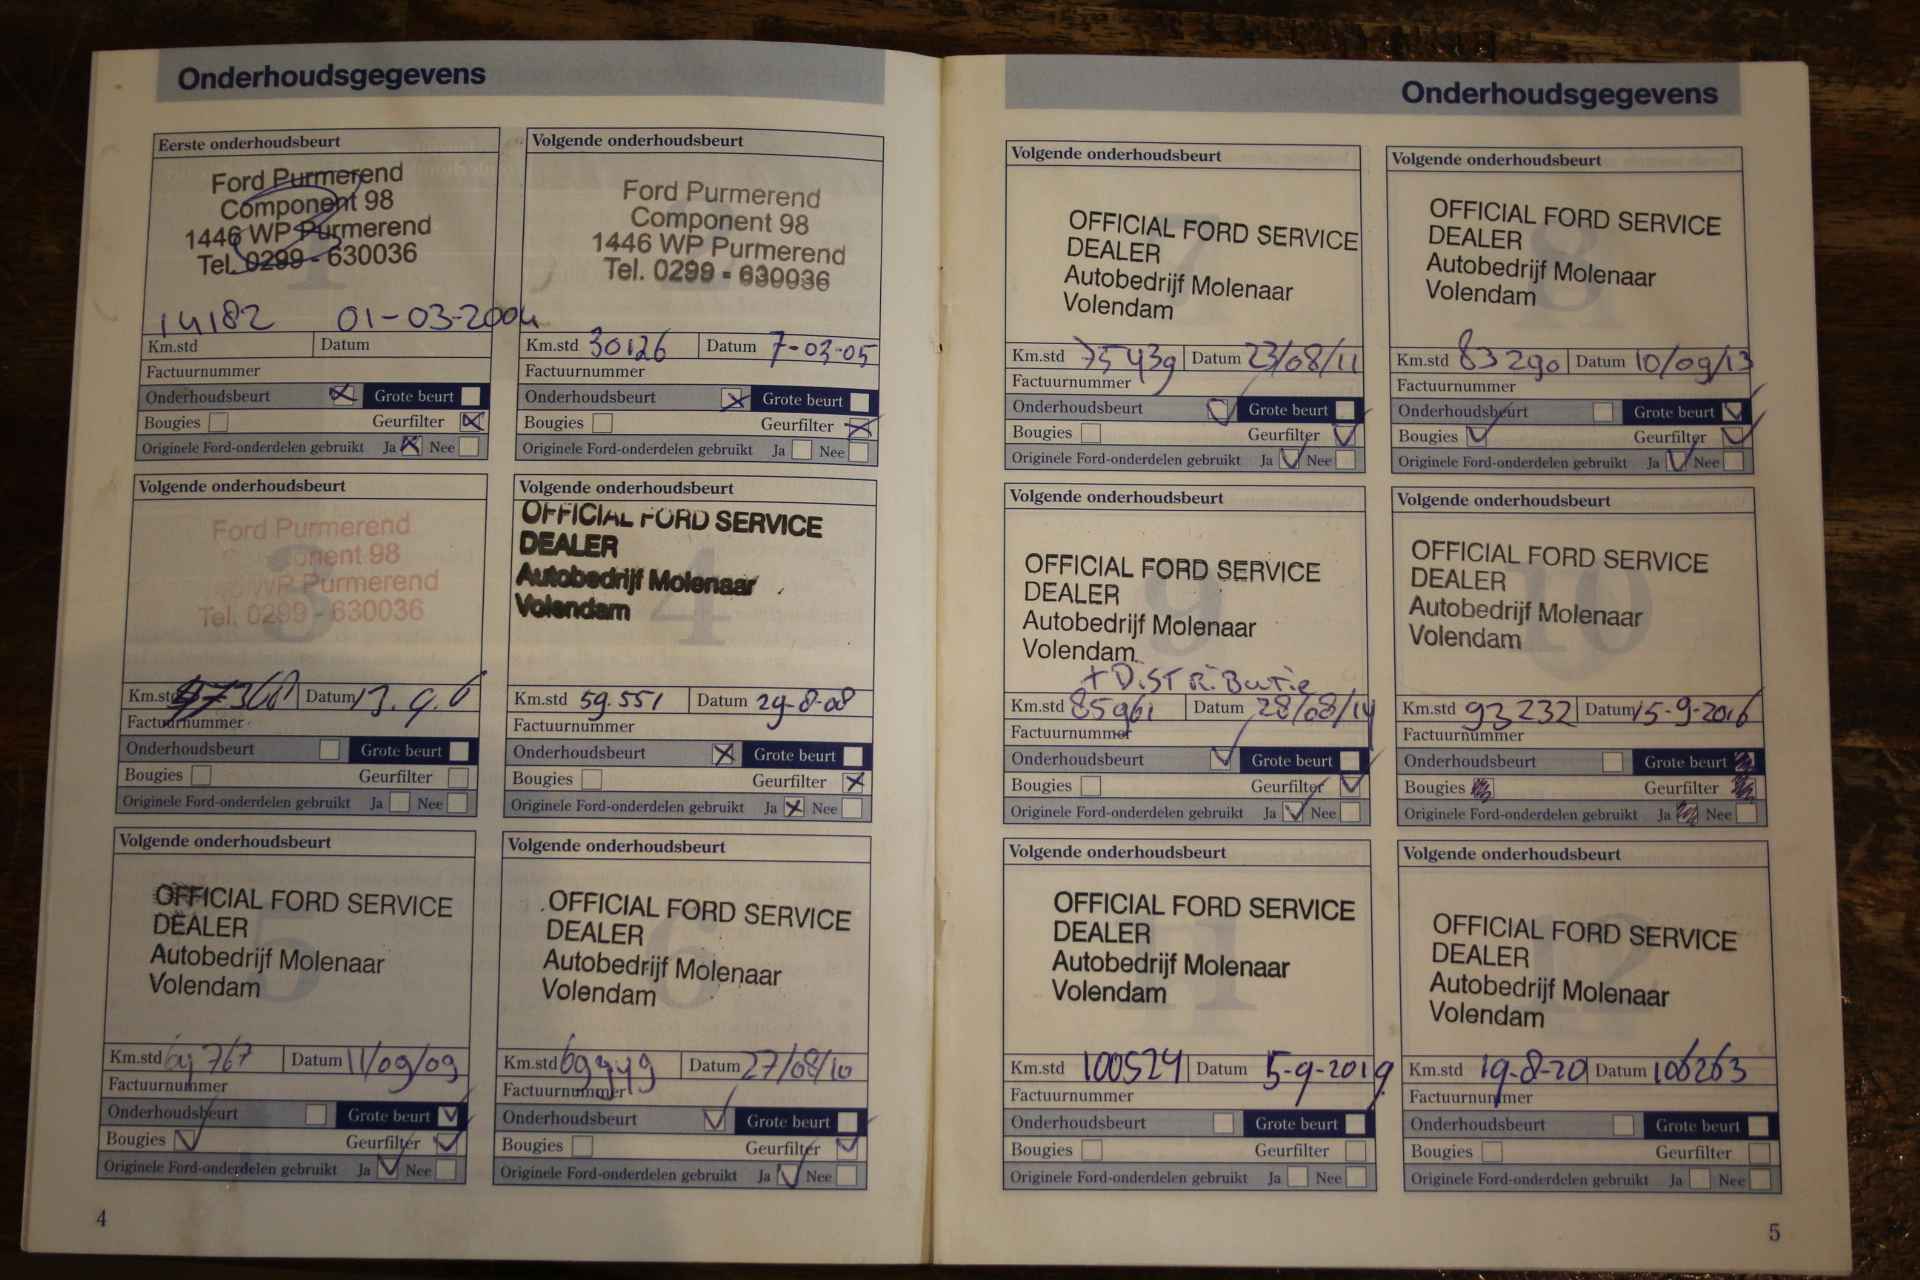 Onderhoudsgegevens
Eerste onderhoudsbeurt
1
Ford Purmerend
Component 98
1446 WP Purmerend
Tel. 0299 - 630036
14182 01-03-2004
Km.std Datum
Factuurnummer
Onderhoudsbeurt Grote beurt
Bougies Geurfilter
Originele Ford-onderdelen gebruikt Ja Nee
Volgende onderhoudsbeurt
2
Ford Purmerend
Component 98
1446 WP Purmerend
Tel. 0299 - 630036
Km.std 30126 Datum 7-03-05
Factuurnummer
Onderhoudsbeurt Grote beurt
Bougies Geurfilter
Originele Ford-onderdelen gebruikt Ja Nee
Volgende onderhoudsbeurt
3
Ford Purmerend
Component 98
WP Purmerend
Tel. 0299 - 630036
Km.std Datum 13.9.6
Factuurnummer
Onderhoudsbeurt Grote beurt
Bougies Geurfilter
Originele Ford-onderdelen gebruikt Ja Nee
Volgende onderhoudsbeurt
4
OFFICIAL FORD SERVICE
DEALER
Autobedrijf Molenaar
Volendam
Km.std 59.551 Datum 29-8-08
Factuurnummer
Onderhoudsbeurt Grote beurt
Bougies Geurfilter
Originele Ford-onderdelen gebruikt Ja Nee
Volgende onderhoudsbeurt
5
OFFICIAL FORD SERVICE
DEALER
Autobedrijf Molenaar
Volendam
Km.std Datum 11/09/09
Factuurnummer
Onderhoudsbeurt Grote beurt
Bougies Geurfilter
Originele Ford-onderdelen gebruikt Ja Nee
Volgende onderhoudsbeurt
6
OFFICIAL FORD SERVICE
DEALER
Autobedrijf Molenaar
Volendam
Km.std 69949 Datum 27/08/10
Factuurnummer
Onderhoudsbeurt Grote beurt
Bougies Geurfilter
Originele Ford-onderdelen gebruikt Ja Nee
4
Onderhoudsgegevens
Volgende onderhoudsbeurt
7
OFFICIAL FORD SERVICE
DEALER
Autobedrijf Molenaar
Volendam
Km.std 75439 Datum 23/08/11
Factuurnummer
Onderhoudsbeurt Grote beurt
Bougies Geurfilter
Originele Ford-onderdelen gebruikt Ja Nee
Volgende onderhoudsbeurt
8
OFFICIAL FORD SERVICE
DEALER
Autobedrijf Molenaar
Volendam
Km.std 83290 Datum 10/09/13
Factuurnummer
Onderhoudsbeurt Grote beurt
Bougies Geurfilter
Originele Ford-onderdelen gebruikt Ja Nee
Volgende onderhoudsbeurt
9
OFFICIAL FORD SERVICE
DEALER
Autobedrijf Molenaar
Volendam
+ DiSTRiBuTie
Km.std 85961 Datum 28/08/14
Factuurnummer
Onderhoudsbeurt Grote beurt
Bougies Geurfilter
Originele Ford-onderdelen gebruikt Ja Nee
Volgende onderhoudsbeurt
10
OFFICIAL FORD SERVICE
DEALER
Autobedrijf Molenaar
Volendam
Km.std 93232 Datum 15-9-2016
Factuurnummer
Onderhoudsbeurt Grote beurt
Bougies Geurfilter
Originele Ford-onderdelen gebruikt Ja Nee
Volgende onderhoudsbeurt
11
OFFICIAL FORD SERVICE
DEALER
Autobedrijf Molenaar
Volendam
Km.std 100524 Datum 5-9-2019
Factuurnummer
Onderhoudsbeurt Grote beurt
Bougies Geurfilter
Originele Ford-onderdelen gebruikt Ja Nee
Volgende onderhoudsbeurt
12
OFFICIAL FORD SERVICE
DEALER
Autobedrijf Molenaar
Volendam
Km.std 19-8-20 Datum 106263
Factuurnummer
Onderhoudsbeurt Grote beurt
Bougies Geurfilter
Originele Ford-onderdelen gebruikt Ja Nee
5